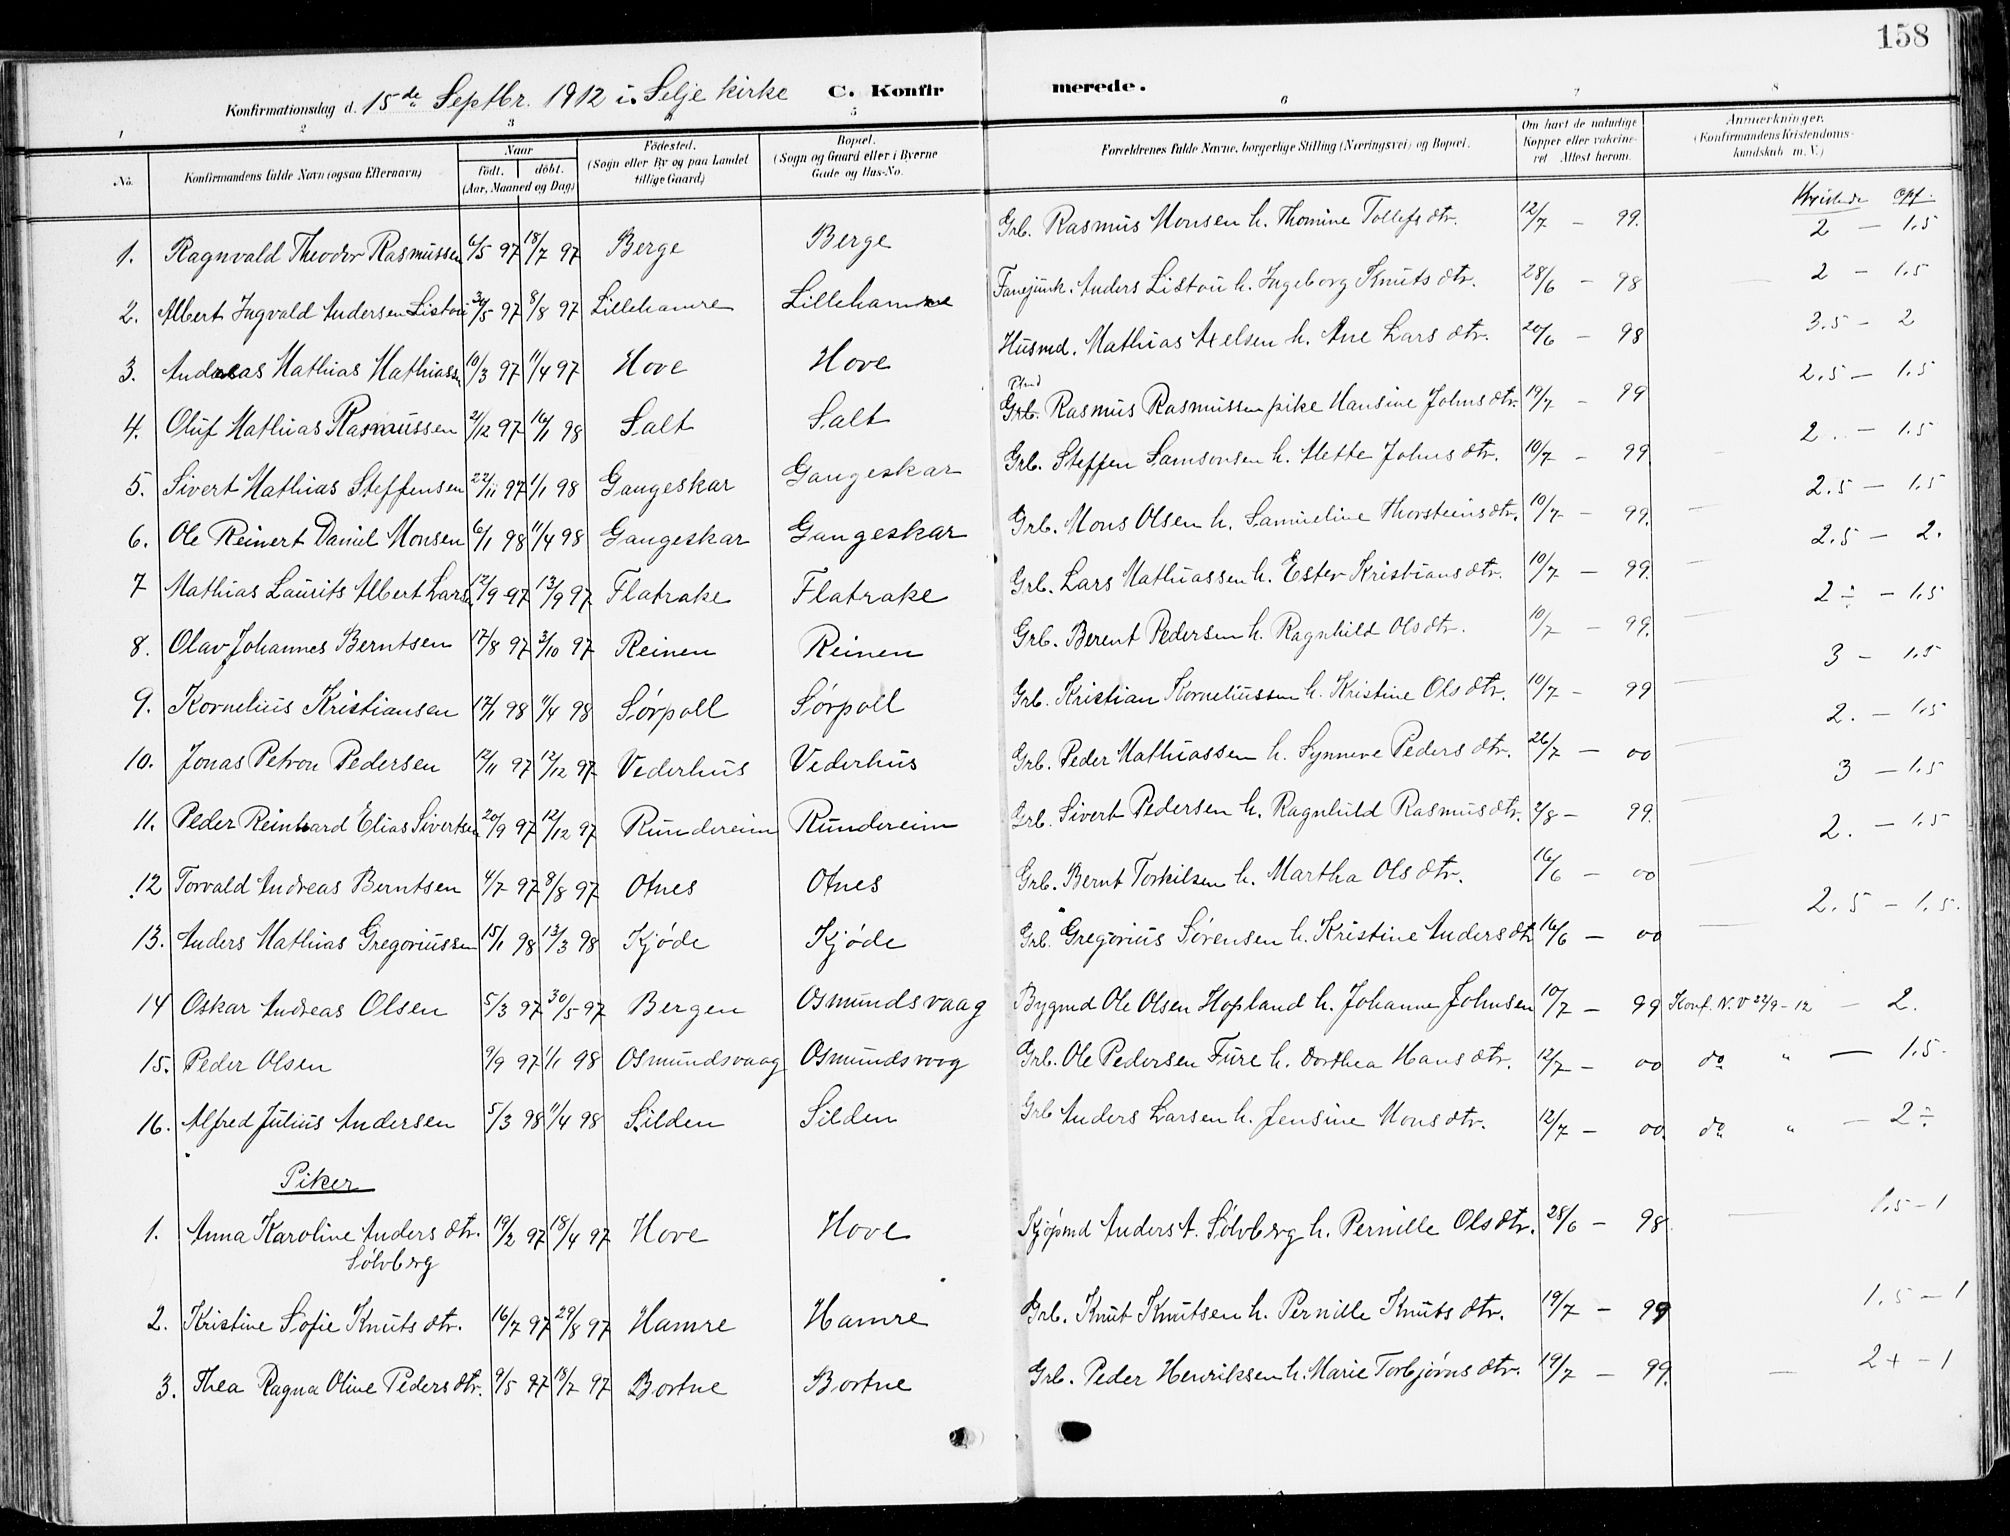 158
Konfirmationsdag d. 15de Septbr. 1912 i Selje kirke C. Konfirmerede.
1 2 3 4 5 6 7 8
No. Konfirmandens fulde Navn (ogsaa Efternavn) Naar født. døbt. (Aar, Maaned og Dag) Fødested. (Sogn eller By og paa Landet tillige Gaard) Bopæl. (Sogn og Gaard eller i Byerne Gade og Hus-No. Forældrenes fulde Navne, borgerlige Stilling (Næringsvei) og Bopæl. Om havt de naturlige Kopper eller vakcineret. Attest herom. Anmærkninger. (Konfirmandens Kristendomskundskab m. V.)
Opf.
1. Ragnvald Theodor Rasmussen 6/5 97 18/7 97 Berge Berge Grb. Rasmus Monsen h. Thomine Tollefsdtr. 12/7 - 99. 2 - 1.5
2. Albert Ingvald Andersen Listou 30/5 97 8/8 97 Lillehamre Lillehamre Fanejunk. Anders Listou h. Ingeborg Knutsdtr. 28/6 - 98 2 - 1.5
3. Andreas Mathias Mathiassen 10/3 97 11/4 97 Hove Hove Husmd. Mathias Axelsen h. Ane Larsdtr. 20/6 - 98 3.5 - 2
4. Oluf Mathias Rasmussen 21/12 97 16/1 98 Salt Salt Grb. Rasmus Rasmussen pike Hansine Johnsdtr. 19/7 - 99 2.5 - 1.5
5. Sivert Mathias Steffensen 22/11 97 1/1 98 Gangeskar Gangeskar Grb. Steffen Samsonsen h. Mette Johnsdtr. 10/7 - 99 2. - 1.5
6. Ole Reinert Daniel Monsen 6/1 98 11/4 98 Gangeskar Gangeskar Grb. Mons Olsen h. Samueline Thorsteinsdtr. 10/7 - 99. 2.5 - 1.5
7 Mathias Laurits Albert Larsen 12/9 97 13/9 97 Flatrake Flatrake Grb. Lars Mathiassen h. Ester Kristiansdtr. 10/7 - 99. 2.5 - 2.
8. Olav Johannes Berntsen 17/8 97 3/10 97 Reinen Reinen Grb. Berent Pedersen h. Ragnhild Olsdtr. 10/7 - 99. 2 ÷ - 1.5
9. Kornelius Kristiansen 17/1 98 11/4 98 Sørpoll Sørpoll Grb. Kristian Korneliussen h. Kristine Olsdtr. 10/7 - 99 3 - 1.5
10. Jonas Petron Pedersen 12/11 97 12/12 97 Vederhus Vederhus Grb. Peder Mathiassen h. Synneve Pedersdtr. 26/7 - 00 2. - 1.5
11. Peder Reinhard Elias Sivertsen 20/9 97 12/12 97 Rundereim Rundereim Grb. Sivert Pedersen h. Ragnhild Rasmusdtr. 2/8 - 99. 3 - 1.5
12 Torvald Andreas Berntsen 4/7 97 8/8 97 Otnes Otnes Grb. Bernt Torkilsen h. Martha Olsdtr. 16/6 - 00 2. - 1.5
13. Anders Mathias Gregoriussen 15/1 98 13/3 98 Kjøde Kjøde Grb. Gregorius Sørensen h. Kristine Andersdtr 16/6 - 00 2.5 - 1.5.
14 Oskar Andreas Olsen 5/3 97 30/5 97 Bergen Osmundsvaag Bygmd Ole Olsen Hopland h. Johanne Johnsen 10/7 - 99 Konf. N.V 22/9-12 - 2.
15. Peder Olsen 9/9 97 1/1 98 Osmundsvaag Osmundsvog Grb. Ole Pedersen Fure h. Dorthea Hansdtr. 12/7 - 00 do " - 1.5.
16. Alfred Julius Andersen 5/3 98 11/4 98 Silden Silden Grb Anders Larsen h. Jensine Monsdtr. 12/7 - 00. do " - 2 ÷
Piker
1. Anna Karoline Andersdtr. 19/2 97 18/4 97 Hove Hove Kjøpmd Anders A. Sølvberg h. Pernille Olsdtr. 28/6 - 98. 1.5 - 1
Sølvberg
2. Kristine Sofie Knutsdtr. 16/7 97 29/8 97 Hamre Hamre Grb. Knut Knutsen h. Pernille Knutsdtr. 19/7 - 99 1.5 - 1
3. Thea Ragna Oline Pedersdtr. 9/5 97 18/7 97 Bortne Bortne Grb. Peder Henriksen h. Marie Torbjørnsdtr. 19/7 - 99. 2+ - 1